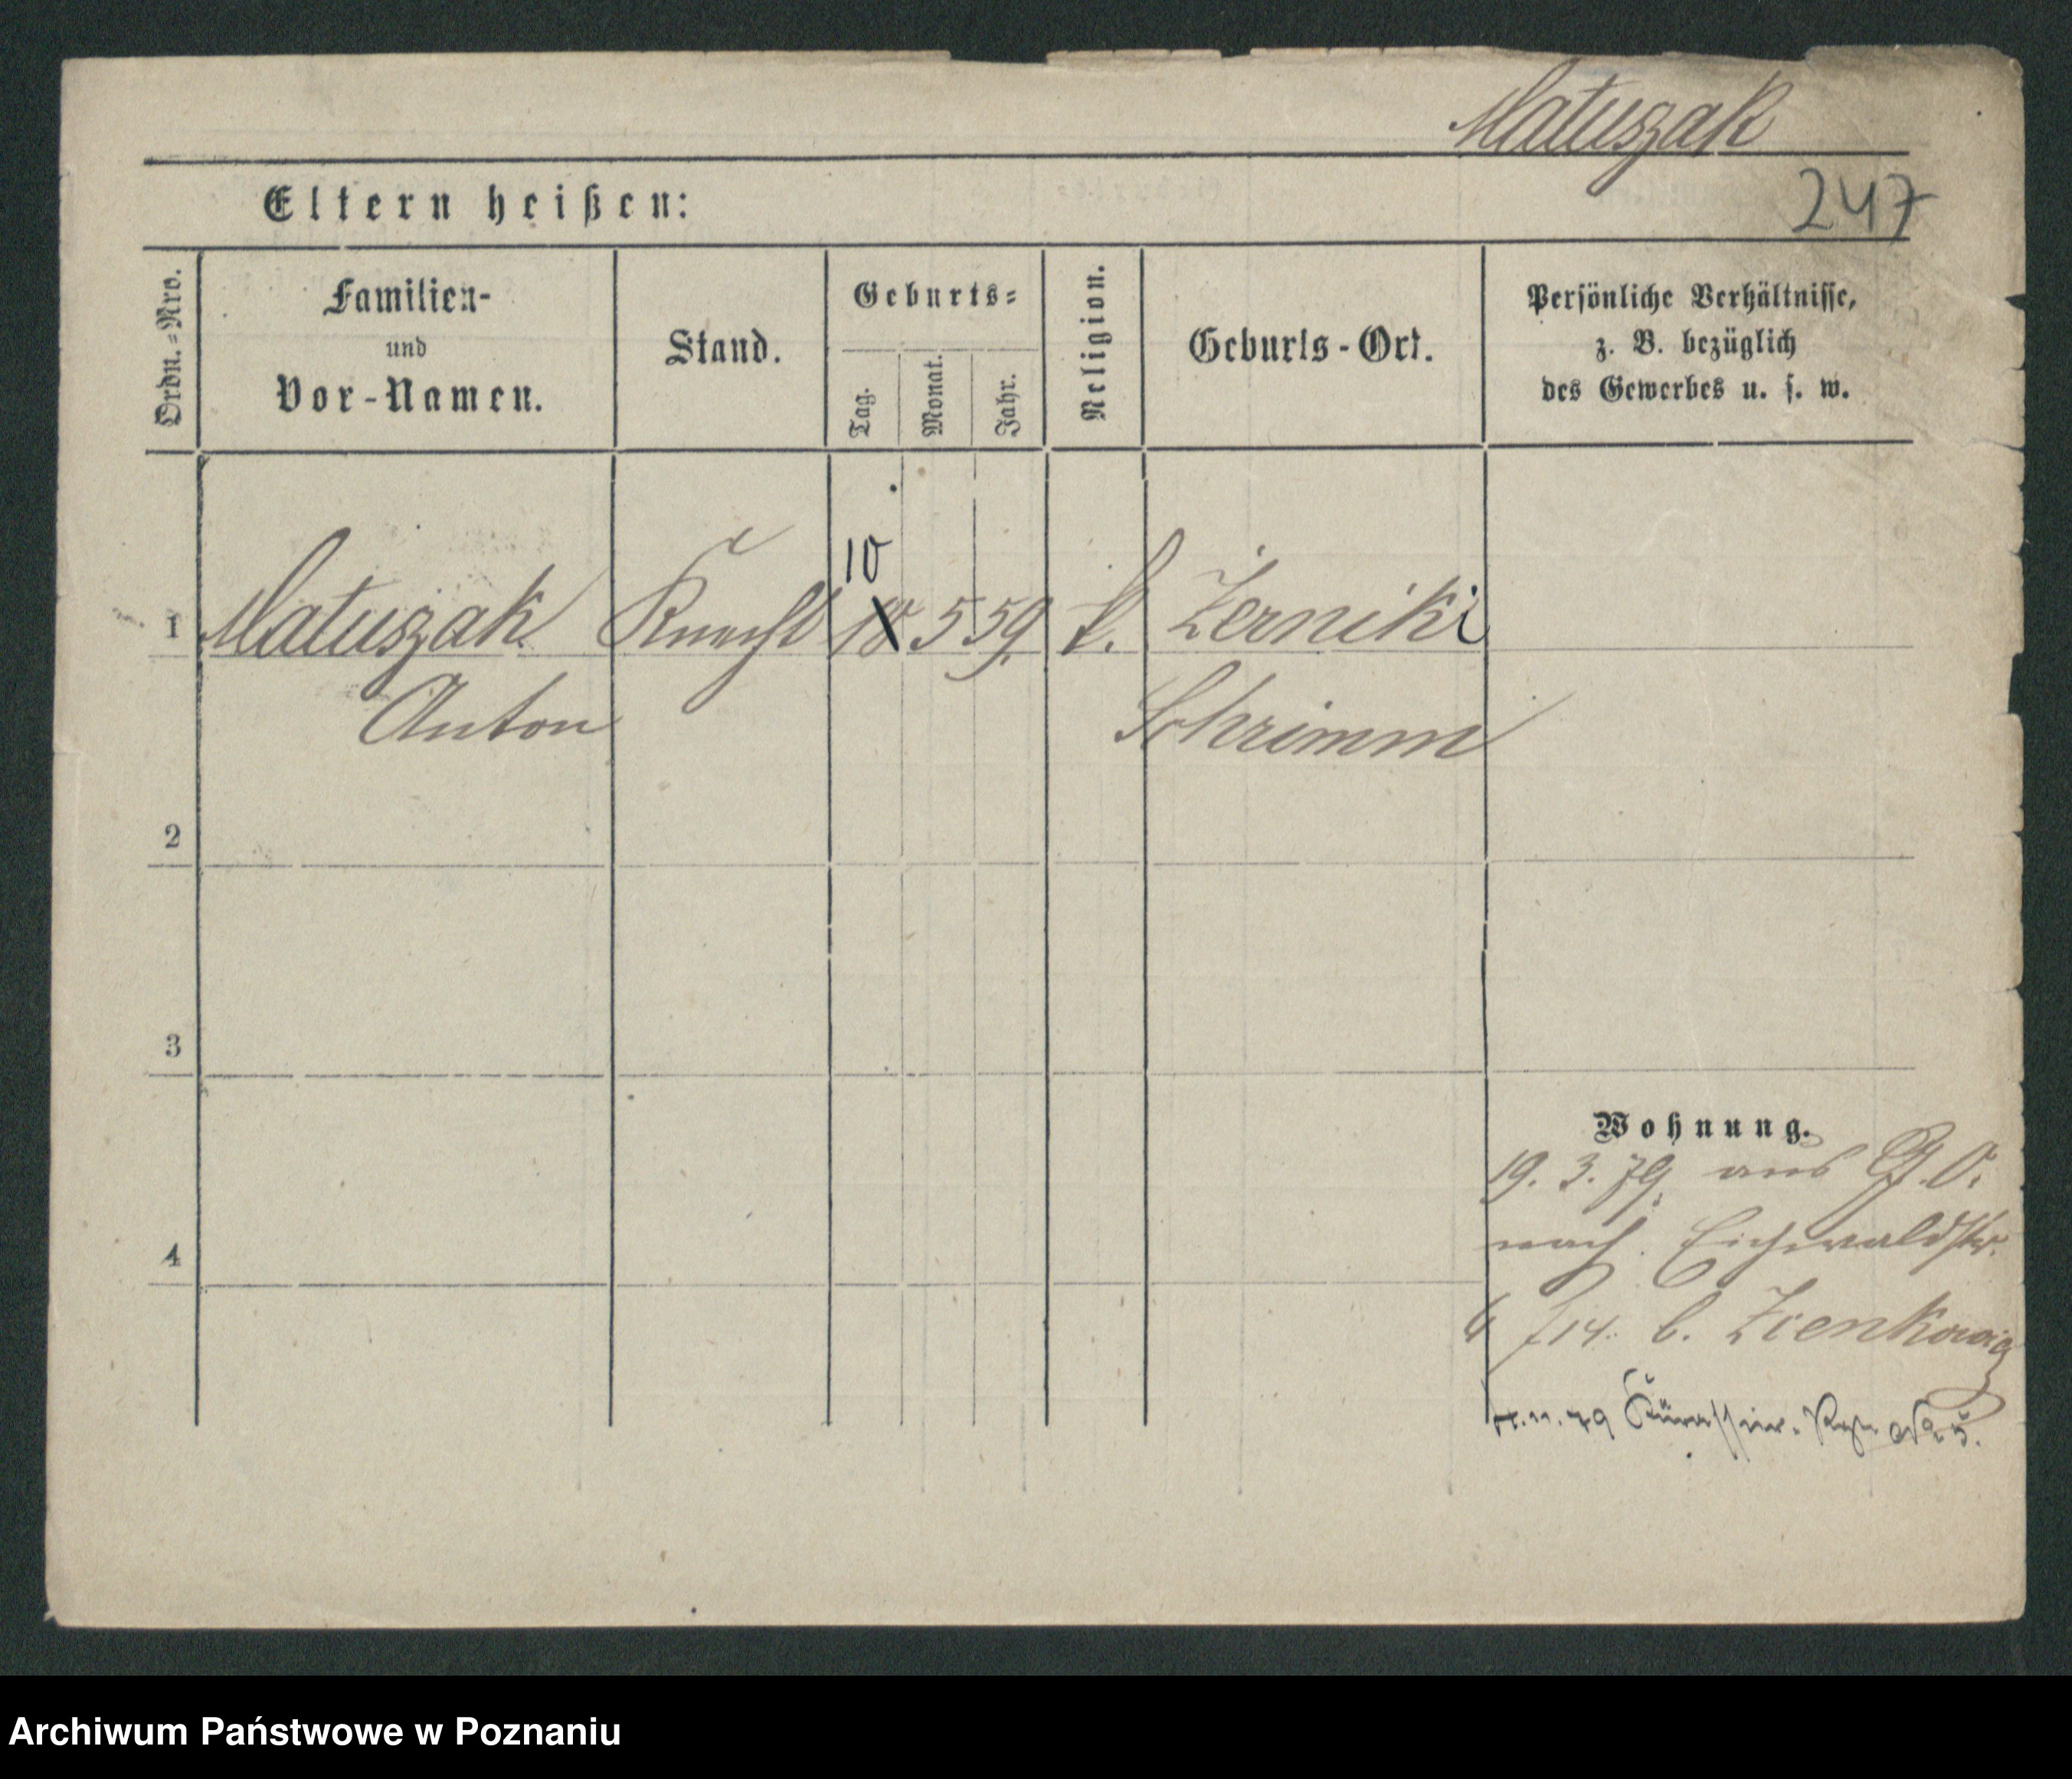 Matuszak
247
Eltern heißen:
Ordn.=Nro.
Familien-
und
Vor-Namen.
Stand.
Geburts=
Tag.
Monat.
Jahr.
Religion.
Geburts-Ort.
Persönliche Verhältnisse,
z. B. bezüglich
des Gewerbes u. s. w.
10
1 Matuszak Knecht 10 5 59. k. Zerniki
Anton Schrimm
2
3
4
Wohnung.
19. 3. 79. aus O.
nach Eichwaldstr.
714. b. Zienkowicz
11. 79 Kürassier. Rgt No 5.
Archiwum Państwowe w Poznaniu